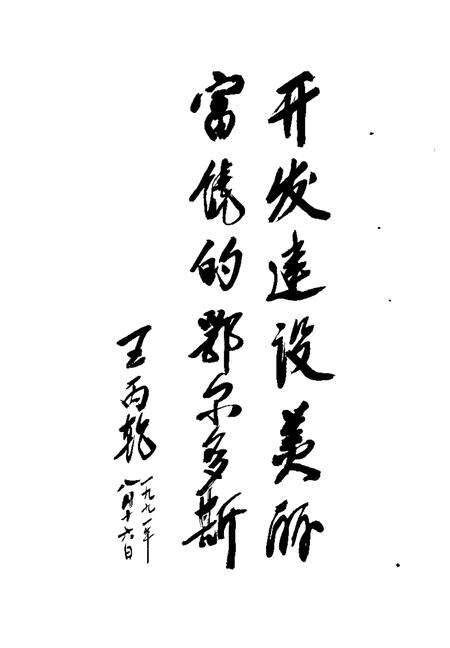 开发建设美丽
富饶的鄂尔多斯
王丙乾
一九九一年
八月十六日